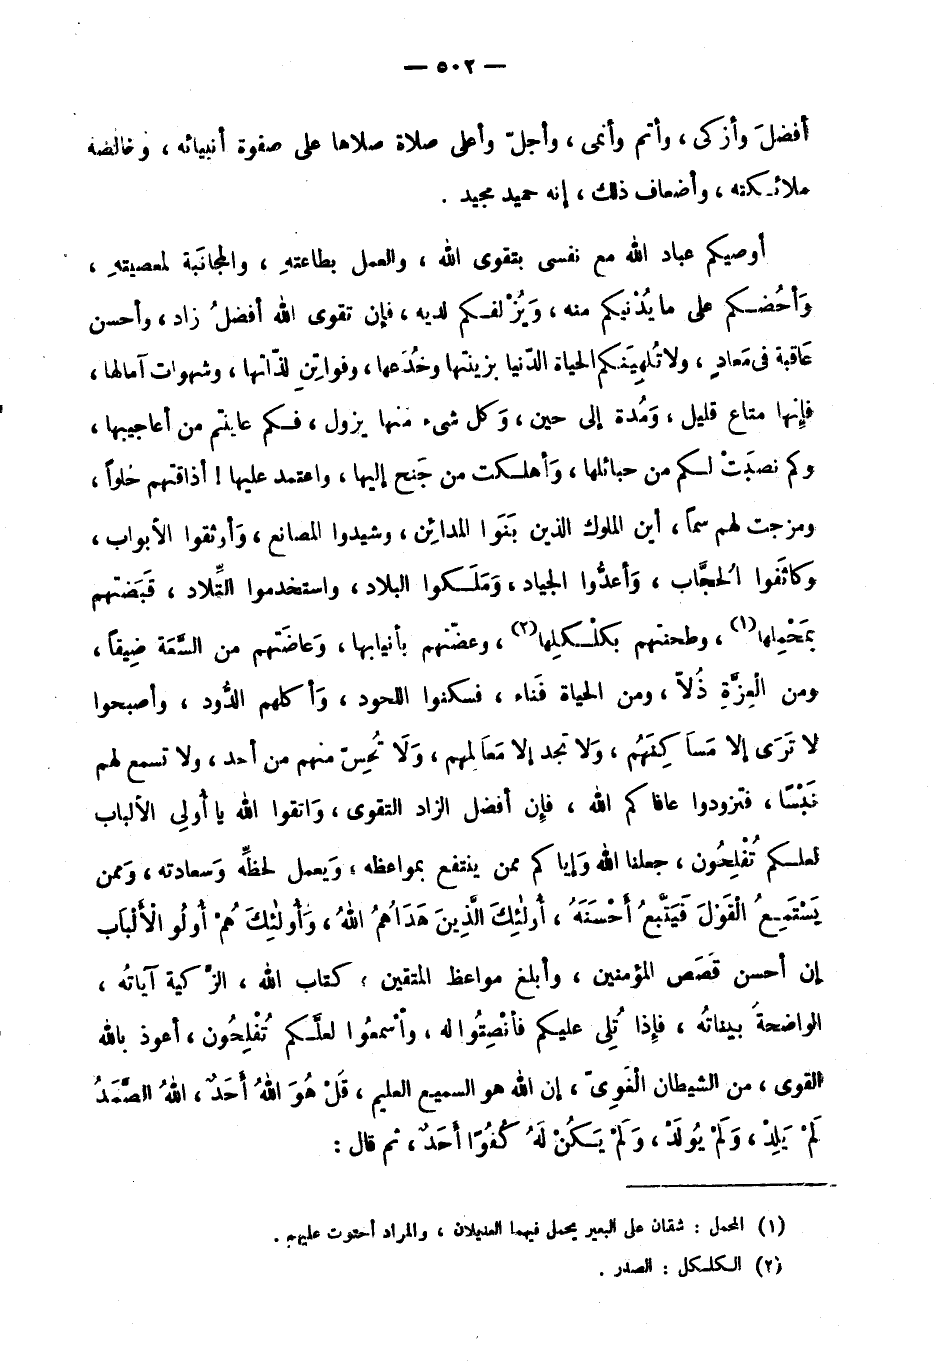 — ٥٠٢ —
أفضلَ وأزكى ، وأتم وأنمى ، وأجلّ وأعلى صلاة صلاها على صفوة أنبيائه ، وخالصة
ملائكته ، وأضعاف ذلك ، إنه حميد مجيد .
أوصيكم عباد الله مع نفسى بتقوى الله ، والعمل بطاعتهِ ، والمجانَبة لمعصيتهِ ،
وَأحُضكم على ما يُدْنيكم منه ، وَيُزْلفكم لديه ، فإن تقوى الله أفضلُ زاد ، وأحسن
عَاقبة فى مَعادٍ ، ولا تُلهِيَنكم الحياة الدّنيا بزينتها وخُدَعها ، وفواتِنِ لذّاتها ، وشهوات آمالها ،
فإِنها متاع قليل ، وَمُدة إلى حين ، وَكل شىء منها يزول ، فكم عاينتم من أعاجيبها ،
وكم نصبَتْ لكم من حبائلها ، وَأهلكت من جَنح إليها ، واعتمد عليها ! أذاقتهم حُلواً ،
ومزجت لهم سماً ، أين الملوك الذين بَنَوا المدائِن ، وشيدوا المصانع ، وَأوثقوا الأبواب ،
وكاثَفوا الحجَّاب ، وَأعدُّوا الجياد ، وَمَلَكوا البلاد ، واستخدموا التِّلاد ، قَبَضتهم
بِمَحْمِلها (١) ، وطحنتهم بكَلْكلِها (٢) ، وعضّتهم بأنيابها ، وَعاضَتهم من السَّعَة ضِيقاً ،
ومن الْعِزَّةِ ذُلاّ ، ومن الحياة فَناء ، فسكنوا اللحود ، وَأكلهم الدُّود ، وأصبحوا
لا تَرَى إلا مَسَاكِنَهُم ، وَلا تجد إلا مَعَالمهم ، وَلَا تُحِسّ منهم من أحد ، ولا تسمع لهم
نَبْسًا ، فتزودوا عافاكم الله ، فإِن أفضل الزاد التقوى ، وَاتقوا الله يا أُولِى الألباب
لعلكم تُفْلِحُون ، جعلنا الله وَإياكم ممن ينتفع بمواعظه ، وَيعمل لحظِّه وَسعادته ، وَممن
يَسْتَمِعُ الْقَوْلَ فَيَتَّبِعُ أَحْسَنَهُ ، أُولٰئِكَ الَّذِينَ هَدَاهُمُ اللهُ ، وَأُولٰئِكَ هُمْ أُولُو الْأَلْبَاب
إن أحسن قَصَص المؤمنين ، وأبلغ مواعظ المتقين ؛ كتاب الله ، الزَّكية آياتُه ،
الواضحةُ بيناتُه ، فإِذا تُلى عليكم فأنْصِتُوا له ، واْسْمعُوا لعلَّكم تُفْلِحُون ، أعوذ بالله
القوى ، من الشيطان الْغَوِىّ ، إن الله هو السميع العليم ، قُلْ هُوَ اللهُ أَحَدٌ ، اللهُ الصَّمَدُ
لَمْ يَلِدْ ، وَلَمْ يُولَدْ ، وَلَمْ يَكُنْ لَهُ كُفُوًا أَحَدٌ ، ثم قال :
(١) المحمل : شقان على البعير يحمل فيهما العديلان ، والمراد أحتوت عليهم .
(٢) الكلكل : الصدر .